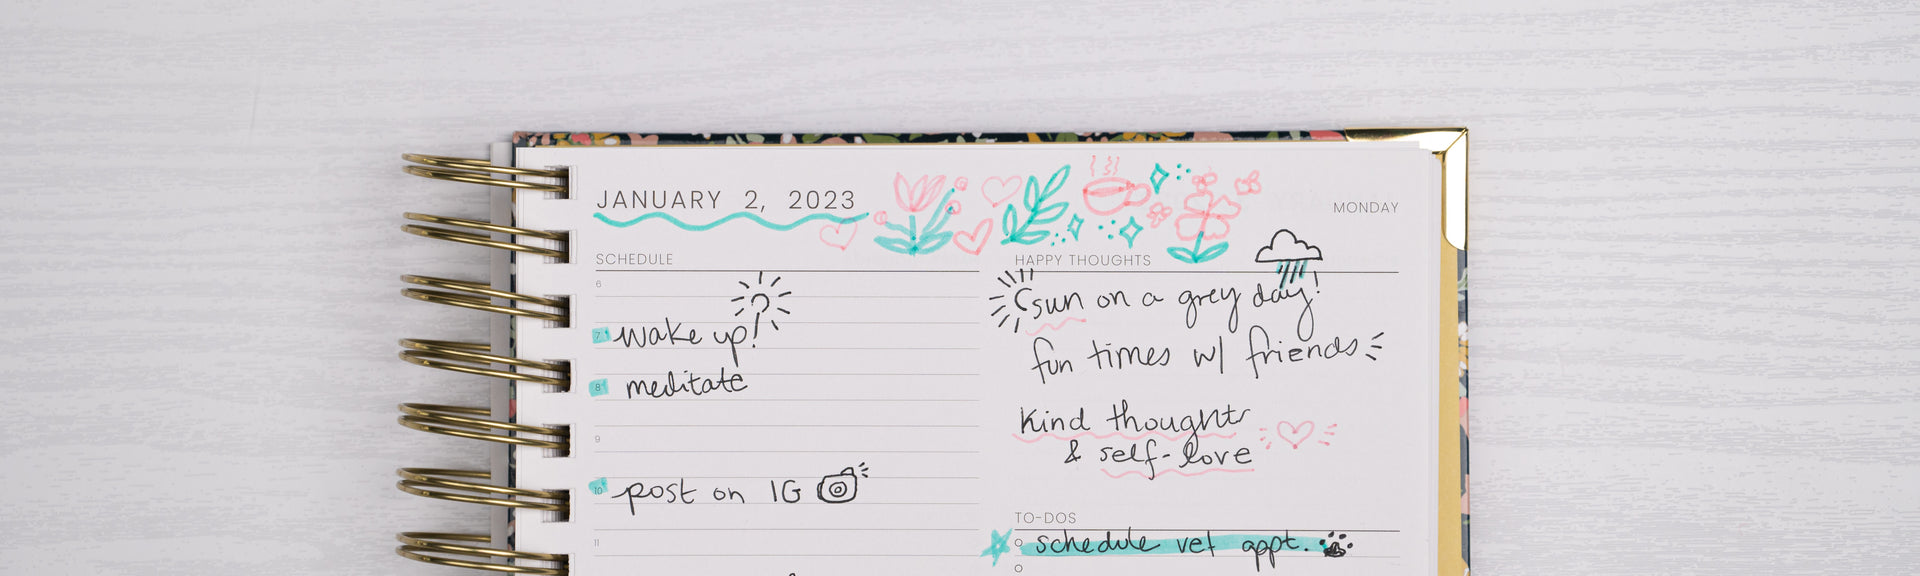 JANUARY 2, 2023
MONDAY
SCHEDULE
6
7 wake up!
8 meditate
9
10 post on IG
11
HAPPY THOUGHTS
sun on a grey day!
fun times w/ friends
kind thoughts
& self-love
TO-DOS
schedule vet appt.